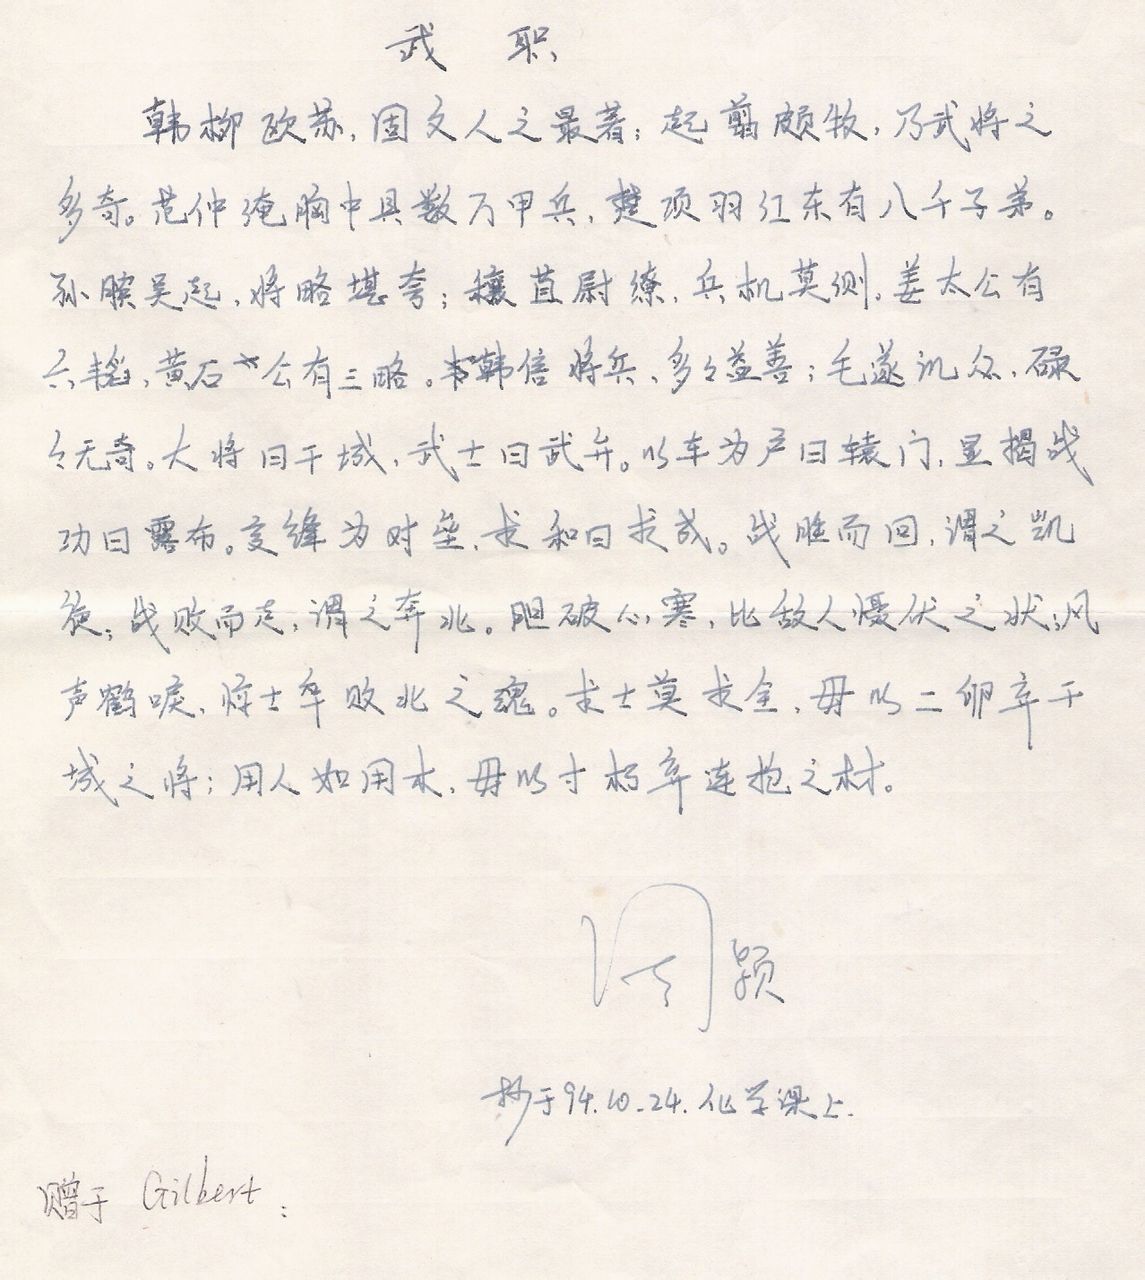 武 职
韩柳欧苏，固文人之最著；起翦颇牧，乃武将之
多奇。范仲淹胸中具数万甲兵，楚项羽江东有八千子弟。
孙膑吴起，将略堪夸；穰苴尉缭，兵机莫测，姜太公有
六韬，黄石公有三略。韩信将兵，多々益善；毛遂讥众，碌
々无奇。大将曰干城，武士曰武弁。以车为户曰辕门，显揭战
功曰露布。交锋为对垒，求和曰求成。战胜而回，谓之凯
旋；战败而走，谓之奔北。胆破心寒，比敌人慑伏之状；风
声鹤唳，惊士卒败北之魂。求士莫求全，毋以二卵弃干
城之将；用人如用木，毋以寸朽弃连抱之材。
周颖
抄于94.10.24.化学课上.
赠于 Gilbert：